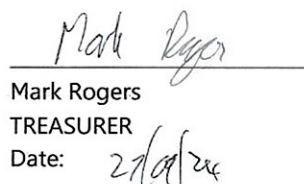 Mark Rogers
Mark Rogers
TREASURER
Date: 27/09/24